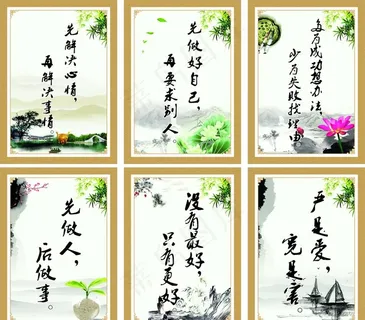 先解决心情，
再解决事情。
先做好自己，
再要求别人。
多为成功想办法，
少为失败找理由
先做人，
后做事。
没有最好，
只有更好
严是爱，
宽是害。